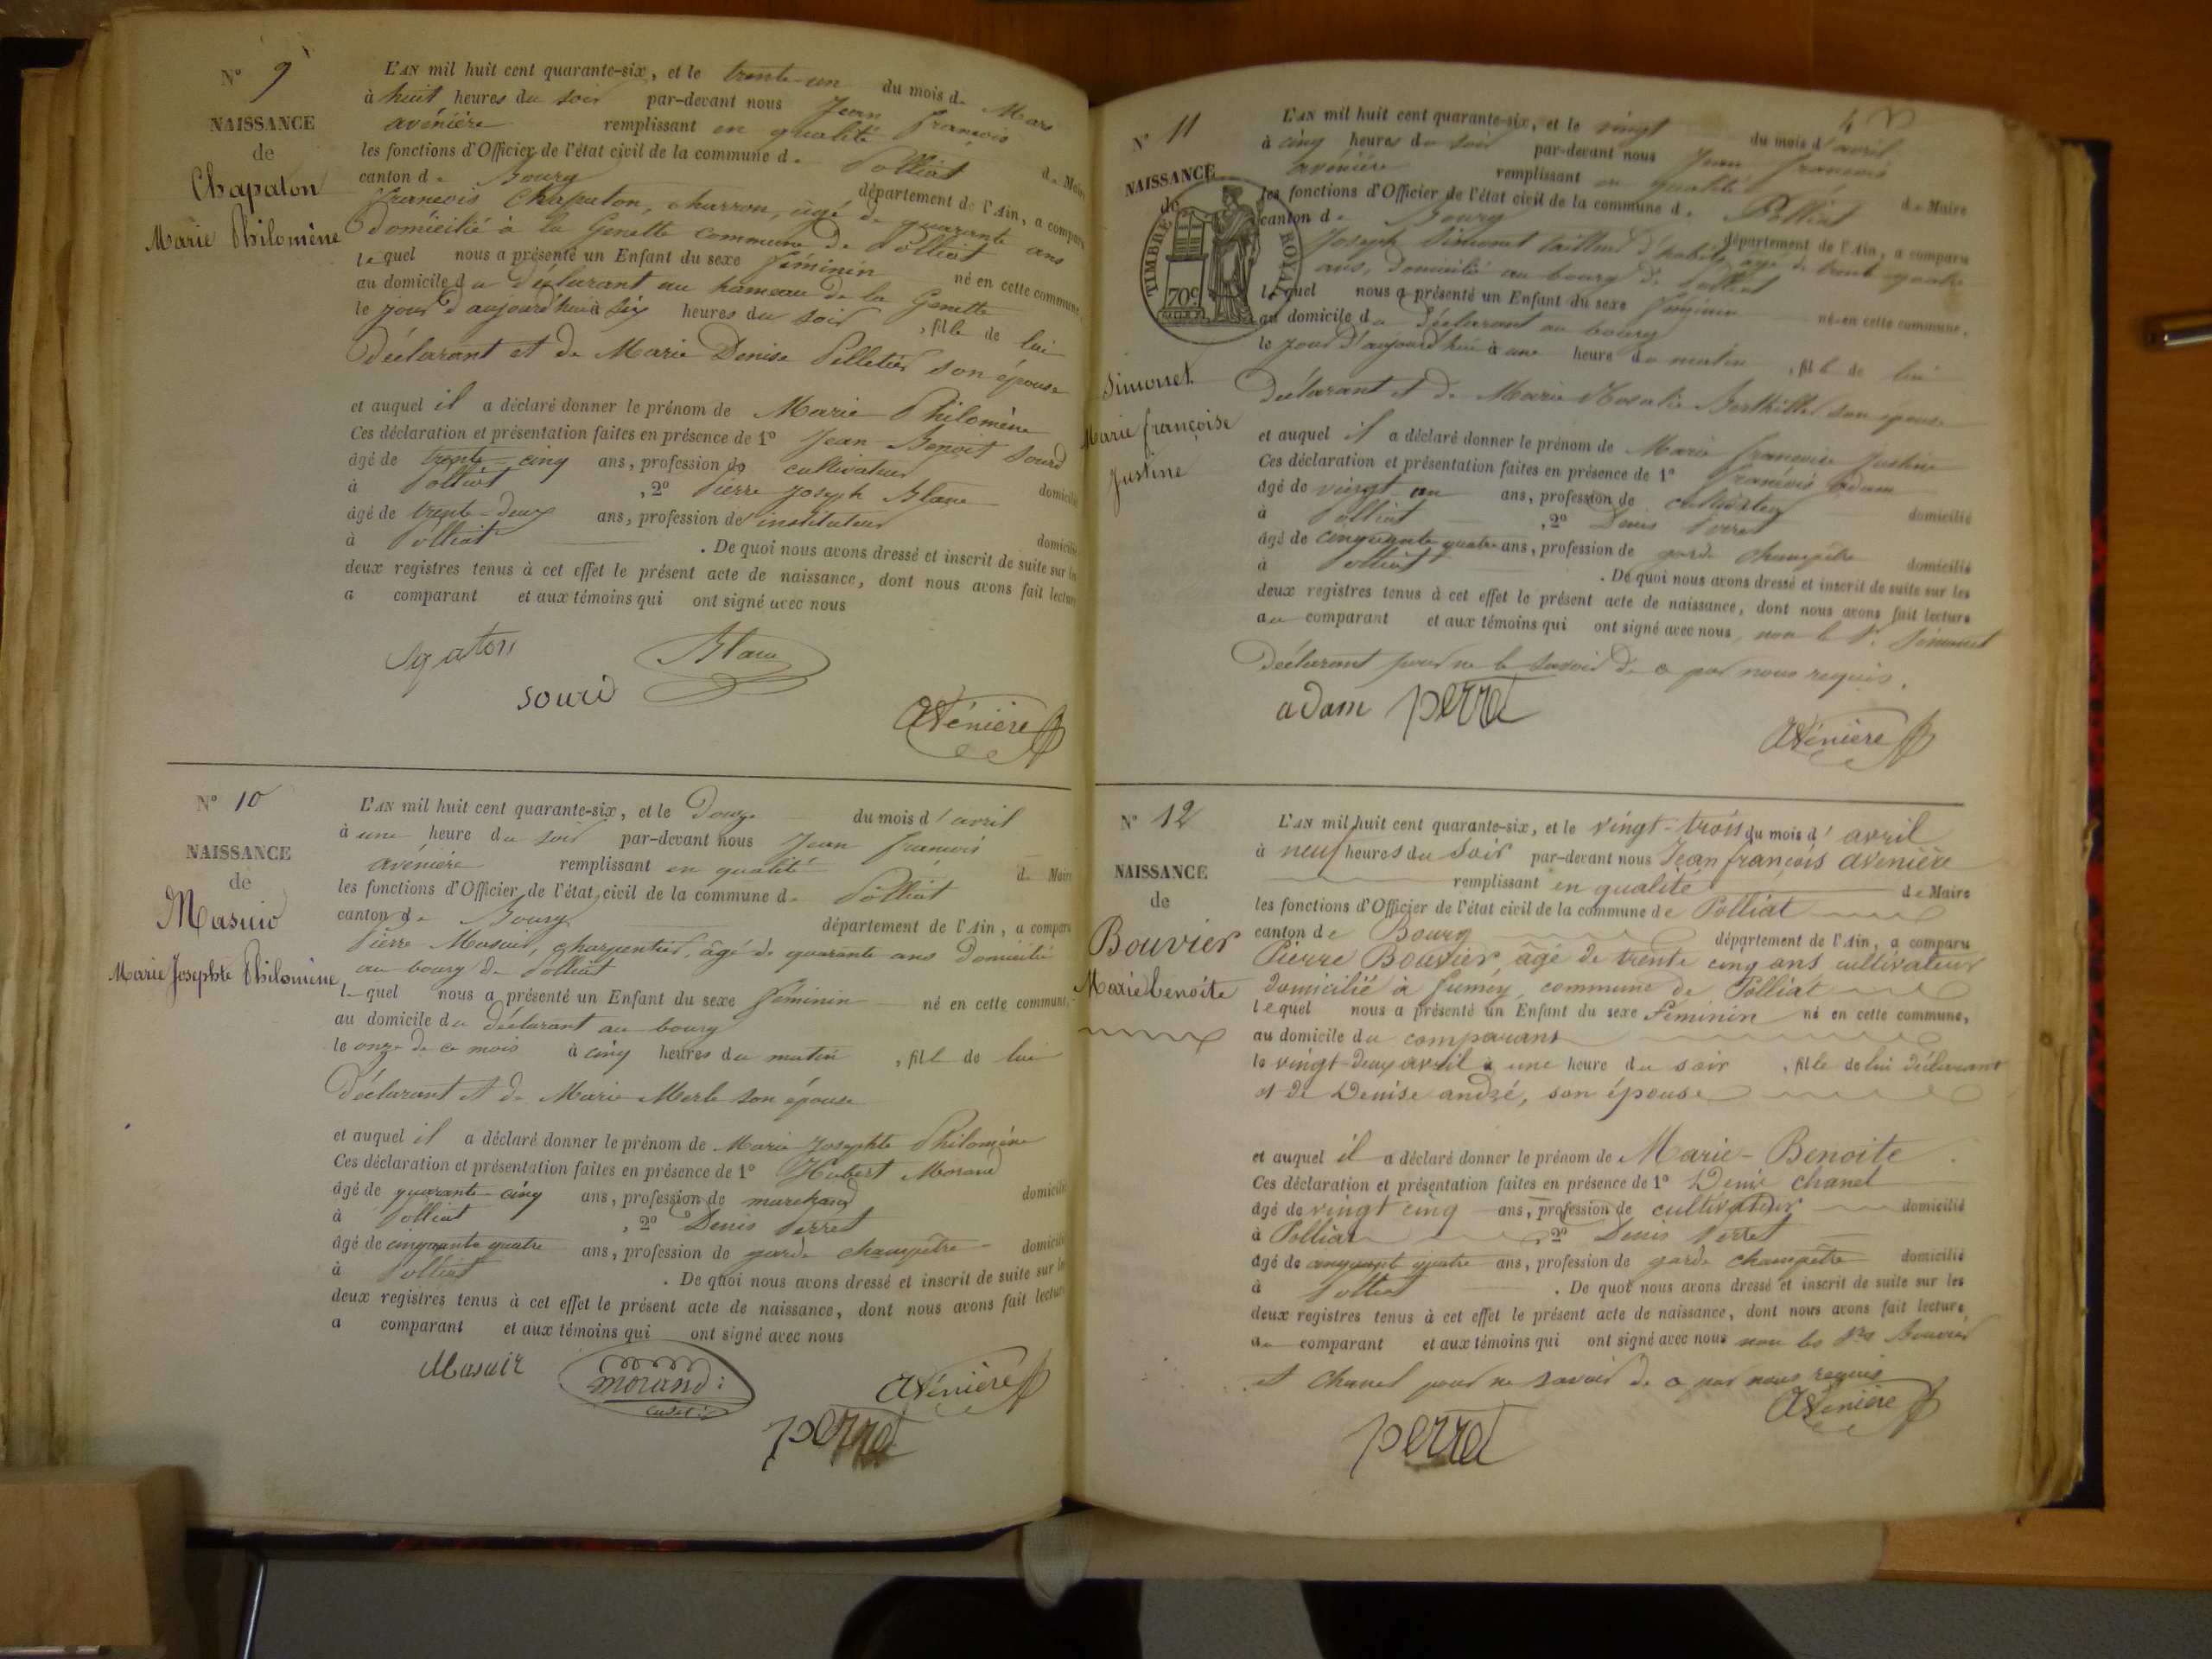 N° 9
NAISSANCE
de
Chapaton
Marie Philomène
L'AN mil huit cent quarante-six, et le trente-un du mois de Mars
à huit heures du soir par-devant nous Jean françois
avénière remplissant en qualité de Maire
les fonctions d'Officier de l'état civil de la commune de Polliat
canton de Bourg département de l'Ain, a comparu
françois Chapaton, charron, âgé de quarante ans
Domicilié à la Genette commune de Polliat
lequel nous a présenté un Enfant du sexe féminin né en cette commune,
au domicile du déclarant au hameau de la Genette
le jour d'aujourd'hui à six heures du soir, fille de lui
Déclarant et de Marie Denise Pelletier son épouse
et auquel il a déclaré donner le prénom de Marie Philomène
Ces déclaration et présentation faites en présence de 1° Jean-Benoit Sourd
âgé de trente-cinq ans, profession de cultivateur domicilié
à Polliat, 2° Pierre Joseph Blanc
âgé de trente-deux ans, profession de instituteur domicilié
à Polliat. De quoi nous avons dressé et inscrit de suite sur les
deux registres tenus à cet effet le présent acte de naissance, dont nous avons fait lecture
a comparant et aux témoins qui ont signé avec nous
Blanc
Avénière
N° 10
NAISSANCE
de
Masuir
Marie Josephte Philomène
L'AN mil huit cent quarante-six, et le Douze du mois d'avril
à une heure du soir par-devant nous Jean françois
avénière remplissant en qualité de Maire
les fonctions d'Officier de l'état civil de la commune de Polliat
canton de Bourg département de l'Ain, a comparu
Pierre Masuir, charpentier, âgé de quarante ans Domicilié
au bourg de Polliat
lequel nous a présenté un Enfant du sexe féminin né en cette commune,
au domicile du déclarant au bourg
le onze de ce mois à cinq heures du matin, fille de lui
Déclarant et de Marie Merle son épouse
et auquel il a déclaré donner le prénom de Marie Josephte Philomène
Ces déclaration et présentation faites en présence de 1° Hubert Morand
âgé de quarante-cinq ans, profession de marchand domicilié
à Polliat, 2° Denis Perret
âgé de cinquante quatre ans, profession de garde champêtre domicilié
à Polliat. De quoi nous avons dressé et inscrit de suite sur les
deux registres tenus à cet effet le présent acte de naissance, dont nous avons fait lecture
a comparant et aux témoins qui ont signé avec nous
Masuir morand Avénière
perret
N° 11
NAISSANCE
de
TIMBRE ROYAL
70c
Simonet
Marie françoise
Justine
L'AN mil huit cent quarante-six, et le vingt du mois d'avril
à cinq heures du soir par-devant nous Jean françois
avénière remplissant en qualité de Maire
les fonctions d'Officier de l'état civil de la commune de Polliat
canton de Bourg département de l'Ain, a comparu
Joseph Simonet tailleur d'habits, âgé de trente quatre
ans, domicilié au bourg de Polliat
lequel nous a présenté un Enfant du sexe féminin né en cette commune,
au domicile du déclarant au bourg
le jour d'aujourd'hui à une heure du matin, fille de lui
Déclarant et de Marie Rosalie Berthillet son épouse
et auquel il a déclaré donner le prénom de Marie françoise Justine
Ces déclaration et présentation faites en présence de 1° françois adam
âgé de vingt-un ans, profession de cultivateur domicilié
à Polliat, 2° Denis Perret
âgé de cinquante quatre ans, profession de garde champêtre domicilié
à Polliat. De quoi nous avons dressé et inscrit de suite sur les
deux registres tenus à cet effet le présent acte de naissance, dont nous avons fait lecture
au comparant et aux témoins qui ont signé avec nous, non le Sr. Simonet
Déclarant pour ne le savoir de ce par nous requis.
adam perret
Avénière
N° 12
NAISSANCE
de
Bouvier
Marie benoite
L'AN mil huit cent quarante-six, et le vingt-trois du mois d'avril
à neuf heures du soir par-devant nous Jean françois avenière
remplissant en qualité de Maire
les fonctions d'Officier de l'état civil de la commune de Polliat
canton de Bourg département de l'Ain, a comparu
Pierre Bouvier, âgé de trente cinq ans cultivateur
domicilié à commune de Polliat
lequel nous a présenté un Enfant du sexe Féminin né en cette commune,
au domicile du comparant
le vingt-deux avril à une heure du soir, fille de lui déclarant
et de Denise andré, son épouse
et auquel il a déclaré donner le prénom de Marie-Benoite.
Ces déclaration et présentation faites en présence de 1° Denis chanel
âgé de vingt cinq ans, profession de cultivateur domicilié
à Polliat, 2° Denis Perret
âgé de cinquante quatre ans, profession de garde champêtre domicilié
à Polliat. De quoi nous avons dressé et inscrit de suite sur les
deux registres tenus à cet effet le présent acte de naissance, dont nous avons fait lecture
au comparant et aux témoins qui ont signé avec nous non les Srs Bouvier
et Chanel pour ne savoir de ce par nous requis
Avénière
perret